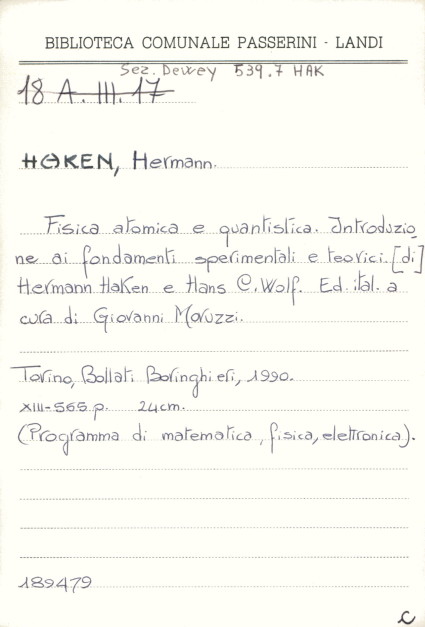 BIBLIOTECA COMUNALE PASSERINI - LANDI
Sez. Dewey 539.7 HAK
18 A. III. 17
HAKEN, Hermann.
Fisica atomica e quantistica. Introduzio
ne ai fondamenti sperimentali e teorici. [di]
Hermann Haken e Hans C. Wolf. Ed. ital. a
cura di Giovanni Moruzzi.
Torino, Bollati Boringhieri, 1990.
XIII-565 p. 24cm.
(Programma di matematica, fisica, elettronica).
189479
C